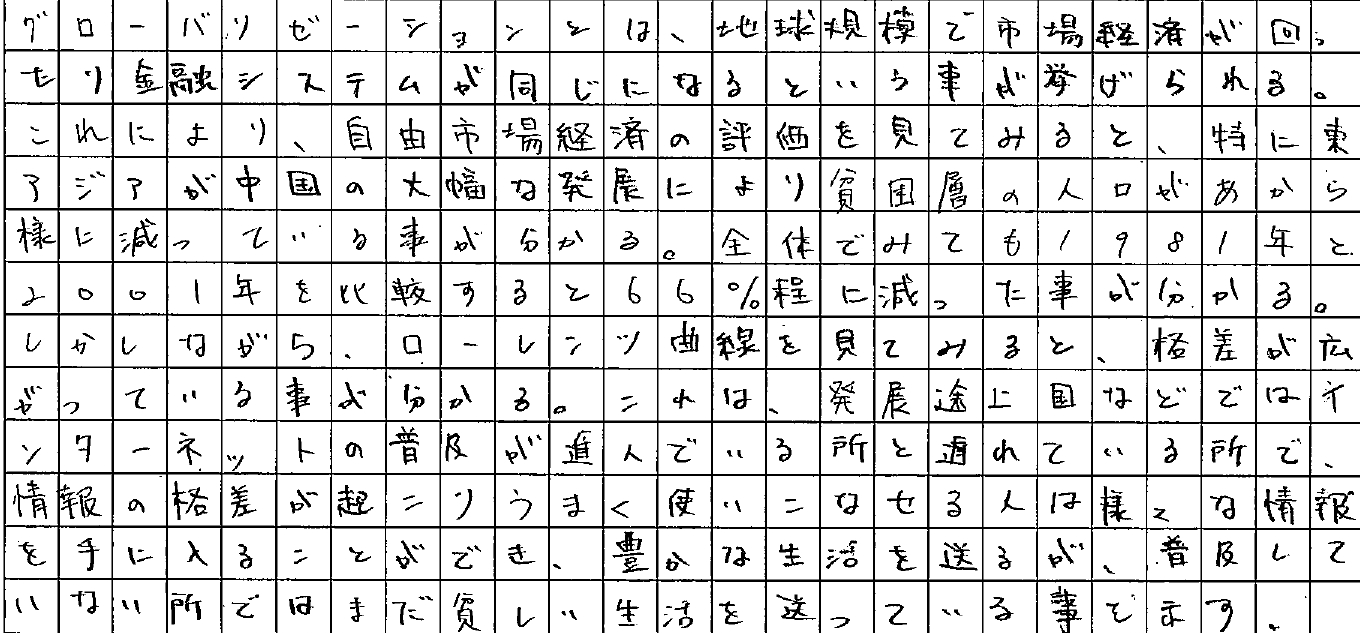 グローバリゼーションとは、地球規模で市場経済が回っ
たり金融システムが同じになるという事が挙げられる。
これにより、自由市場経済の評価を見てみると、特に東
アジアが中国の大幅な発展により貧困層の人口があから
様に減っている事が分かる。全体でみても1981年と
2001年を比較すると66%程に減った事が分かる。
しかしながら、ローレンツ曲線を見てみると、格差が広
がっている事が分かる。これは、発展途上国などではイ
ンターネットの普及が進んでいる所と遅れている所で、
情報の格差が起こりうまく使いこなせる人は様々な情報
を手に入ることができ、豊かな生活を送るが、普及して
いない所ではまだ貧しい生活を送っている事です。